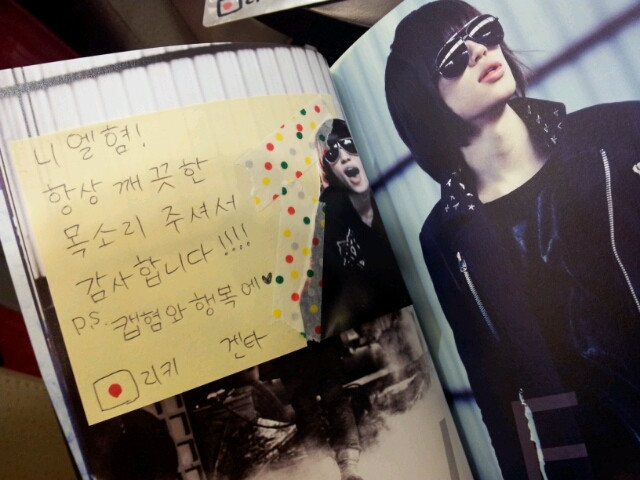 니엘형!
항상 깨끗한
목소리 주셔서
감사합니다!!!!
p.s. 캡형와 행복에♥
리키 겐타
E